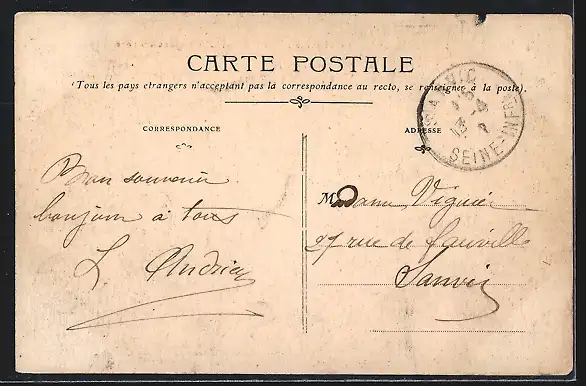 CARTE POSTALE
(Tous les pays etrangers n'acceptant pas la correspondance au recto, se renseigner à la poste).
CORRESPONDANCE
ADRESSE
SEINE-INFRE
Bon souvenir
bonjour à tous
L. Andrieu
Madame Viguier
27 rue de Fauville
Sanvic